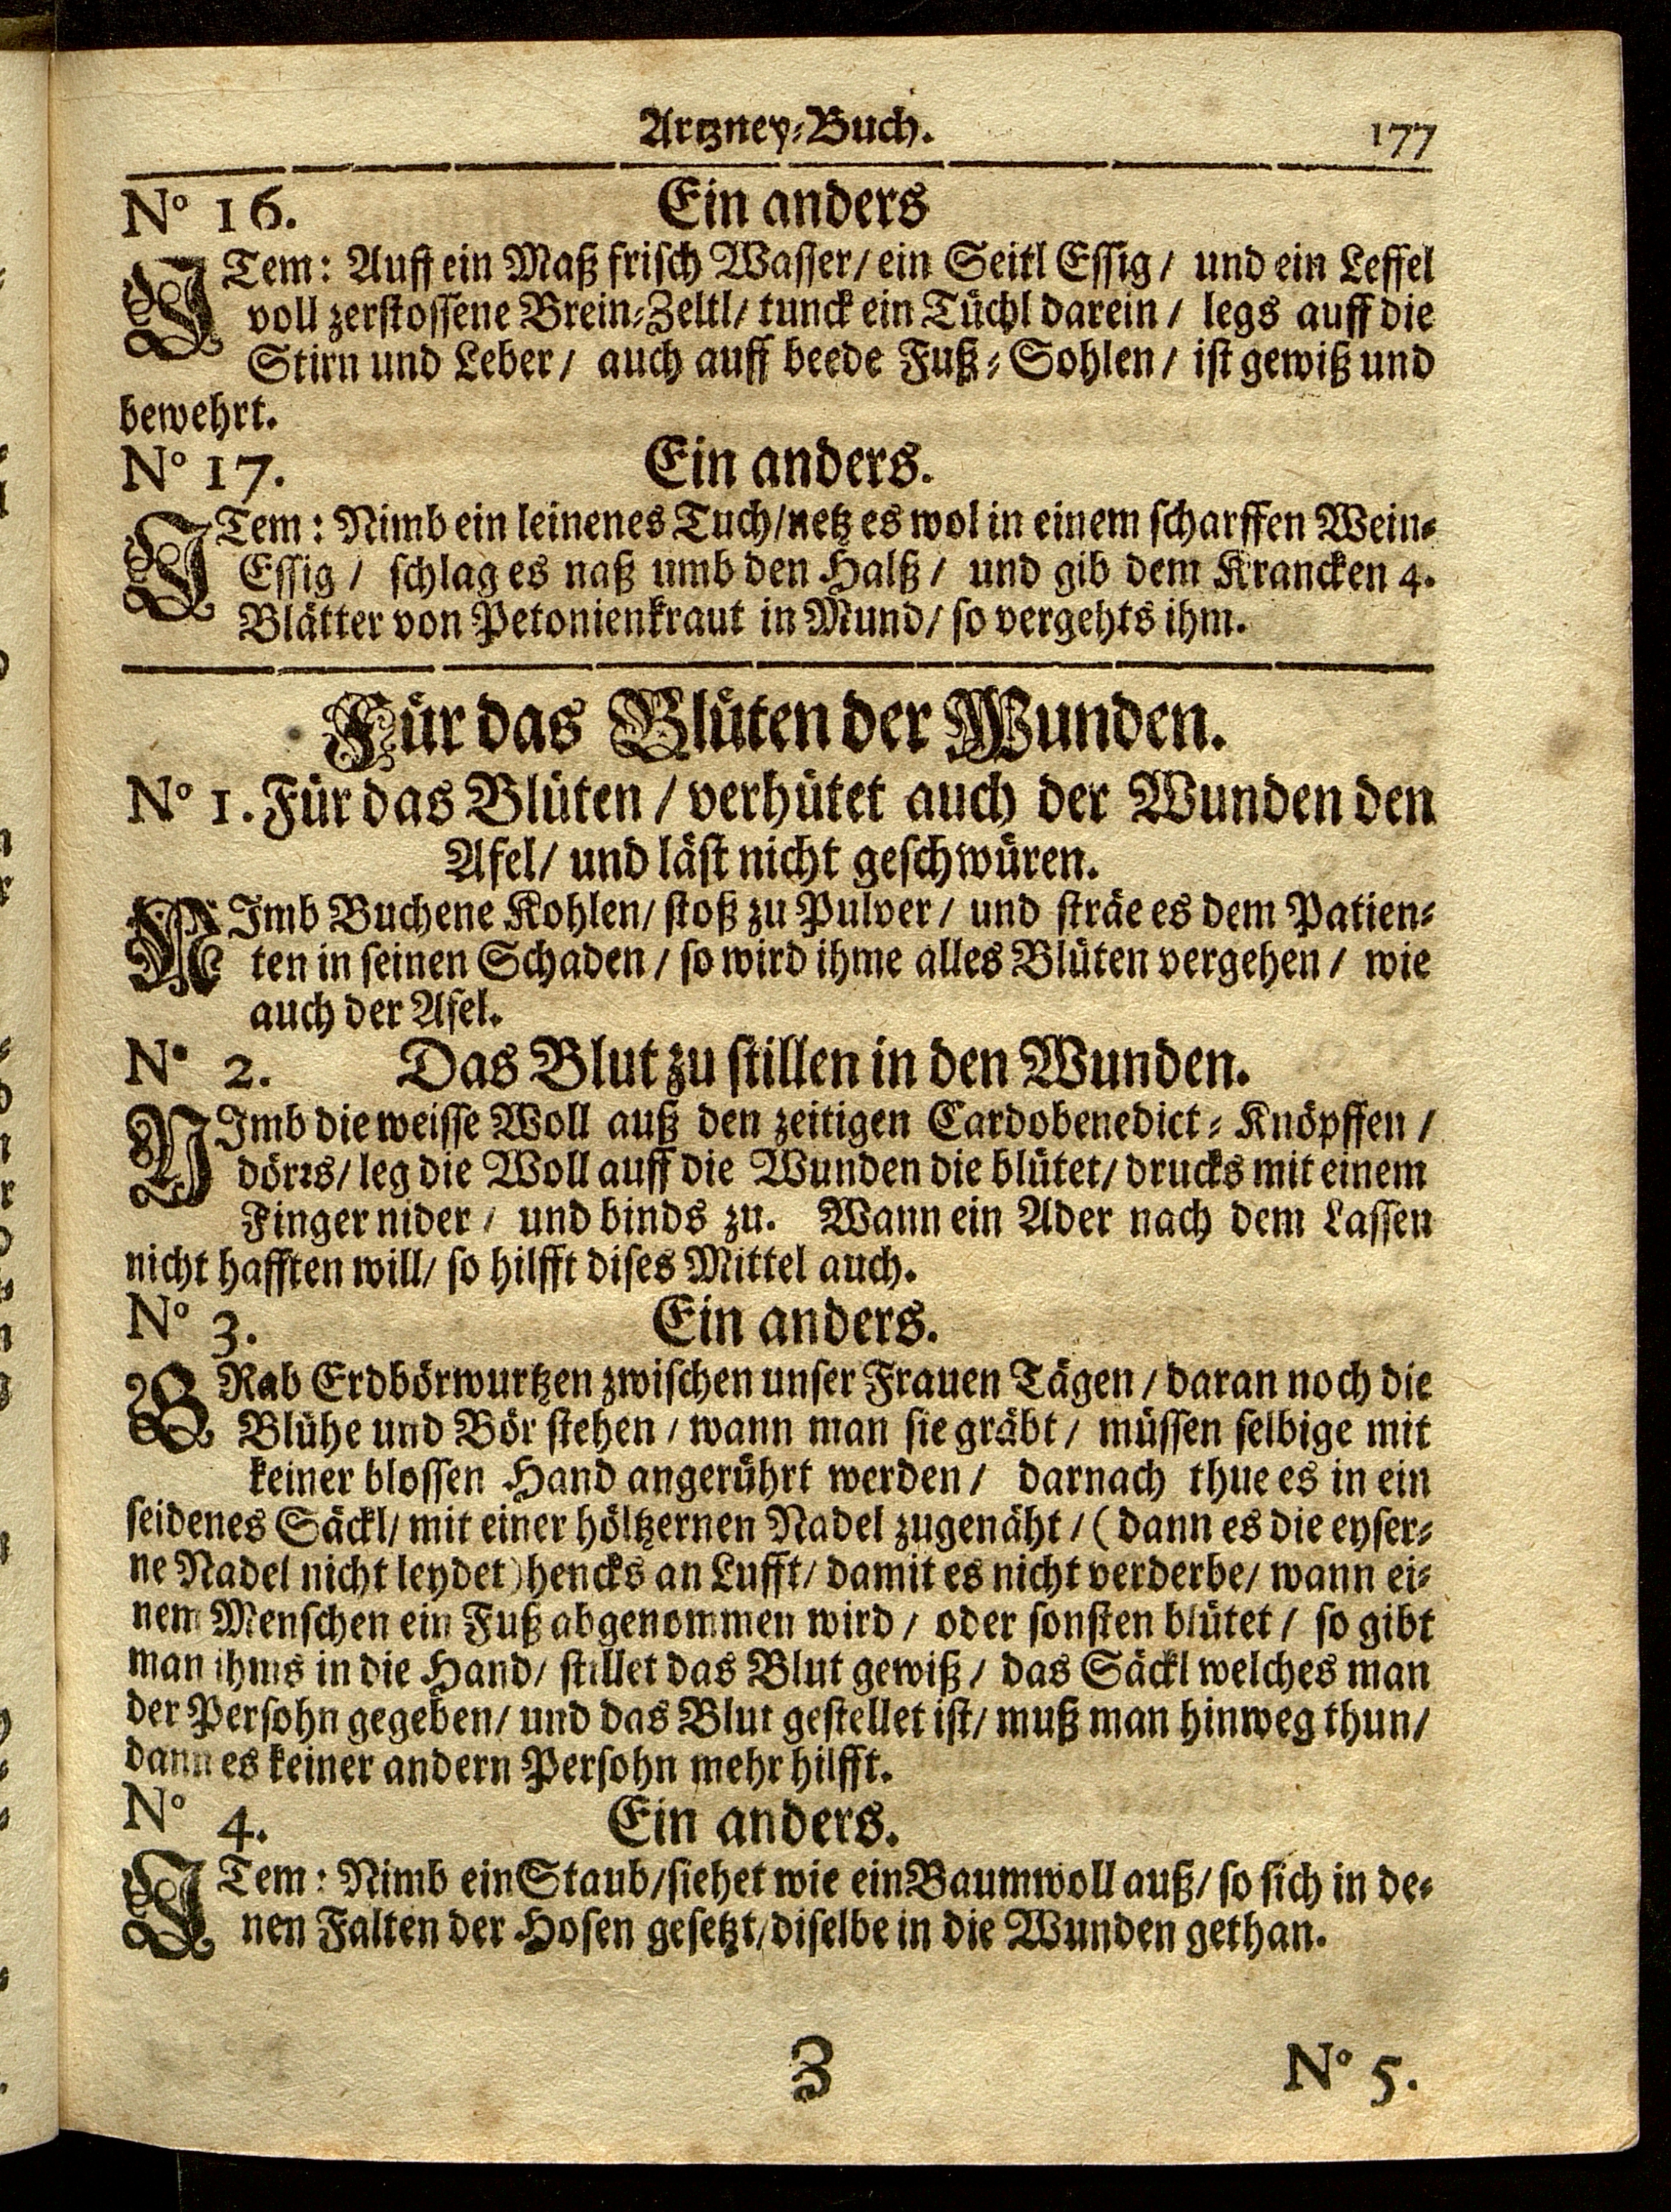 Artzney-Buch. 177
No 16. Ein anders
ITem: Auff ein Maß frisch Wasser/ ein Seitl Essig/ und ein Leffel
voll zerstossene Brein-Zeltl/ tunck ein Tüchl darein/ legs auff die
Stirn und Leber/ auch auff beede Fuß-Sohlen/ ist gewiß und
bewehrt.
No 17. Ein anders.
ITem: Nimb ein leinenes Tuch/netz es wol in einem scharffen Wein-
Essig/ schlag es naß umb den Halß/ und gib dem Krancken 4.
Blätter von Petonienkraut in Mund/ so vergehts ihm.
Für das Blüten der Wunden.
No 1. Für das Blüten/ verhütet auch der Wunden den
Afel/ und läst nicht geschwüren.
NImb Buchene Kohlen/ stoß zu Pulver/ und sträe es dem Patien-
ten in seinen Schaden/ so wird ihme alles Blüten vergehen/ wie
auch der Afel.
No 2. Das Blut zu stillen in den Wunden.
NImb die weisse Woll auß den zeitigen Cardobenedict-Knöpffen/
dörrs/ leg die Woll auff die Wunden die blütet/ drucks mit einem
Finger nider/ und binds zu. Wann ein Ader nach dem Lassen
nicht hafften will/ so hilfft dises Mittel auch.
No 3. Ein anders.
GRab Erdbörwurtzen zwischen unser Frauen Tägen/ daran noch die
Blühe und Bör stehen/ wann man sie gräbt/ müssen selbige mit
keiner blossen Hand angerührt werden/ darnach thue es in ein
seidenes Säckl/ mit einer höltzernen Nadel zugenäht/ (dann es die eyser-
ne Nadel nicht leydet) hencks an Lufft/ damit es nicht verderbe/ wann ei-
nem Menschen ein Fuß abgenommen wird/ oder sonsten blütet/ so gibt
man ihms in die Hand/ stillet das Blut gewiß/ das Säckl welches man
der Persohn gegeben/ und das Blut gestellet ist/ muß man hinweg thun/
dann es keiner andern Persohn mehr hilfft.
No 4. Ein anders.
ITem: Nimb ein Staub/siehet wie ein Baumwoll auß/ so sich in de-
nen Falten der Hosen gesetzt/diselbe in die Wunden gethan.
Z No 5.